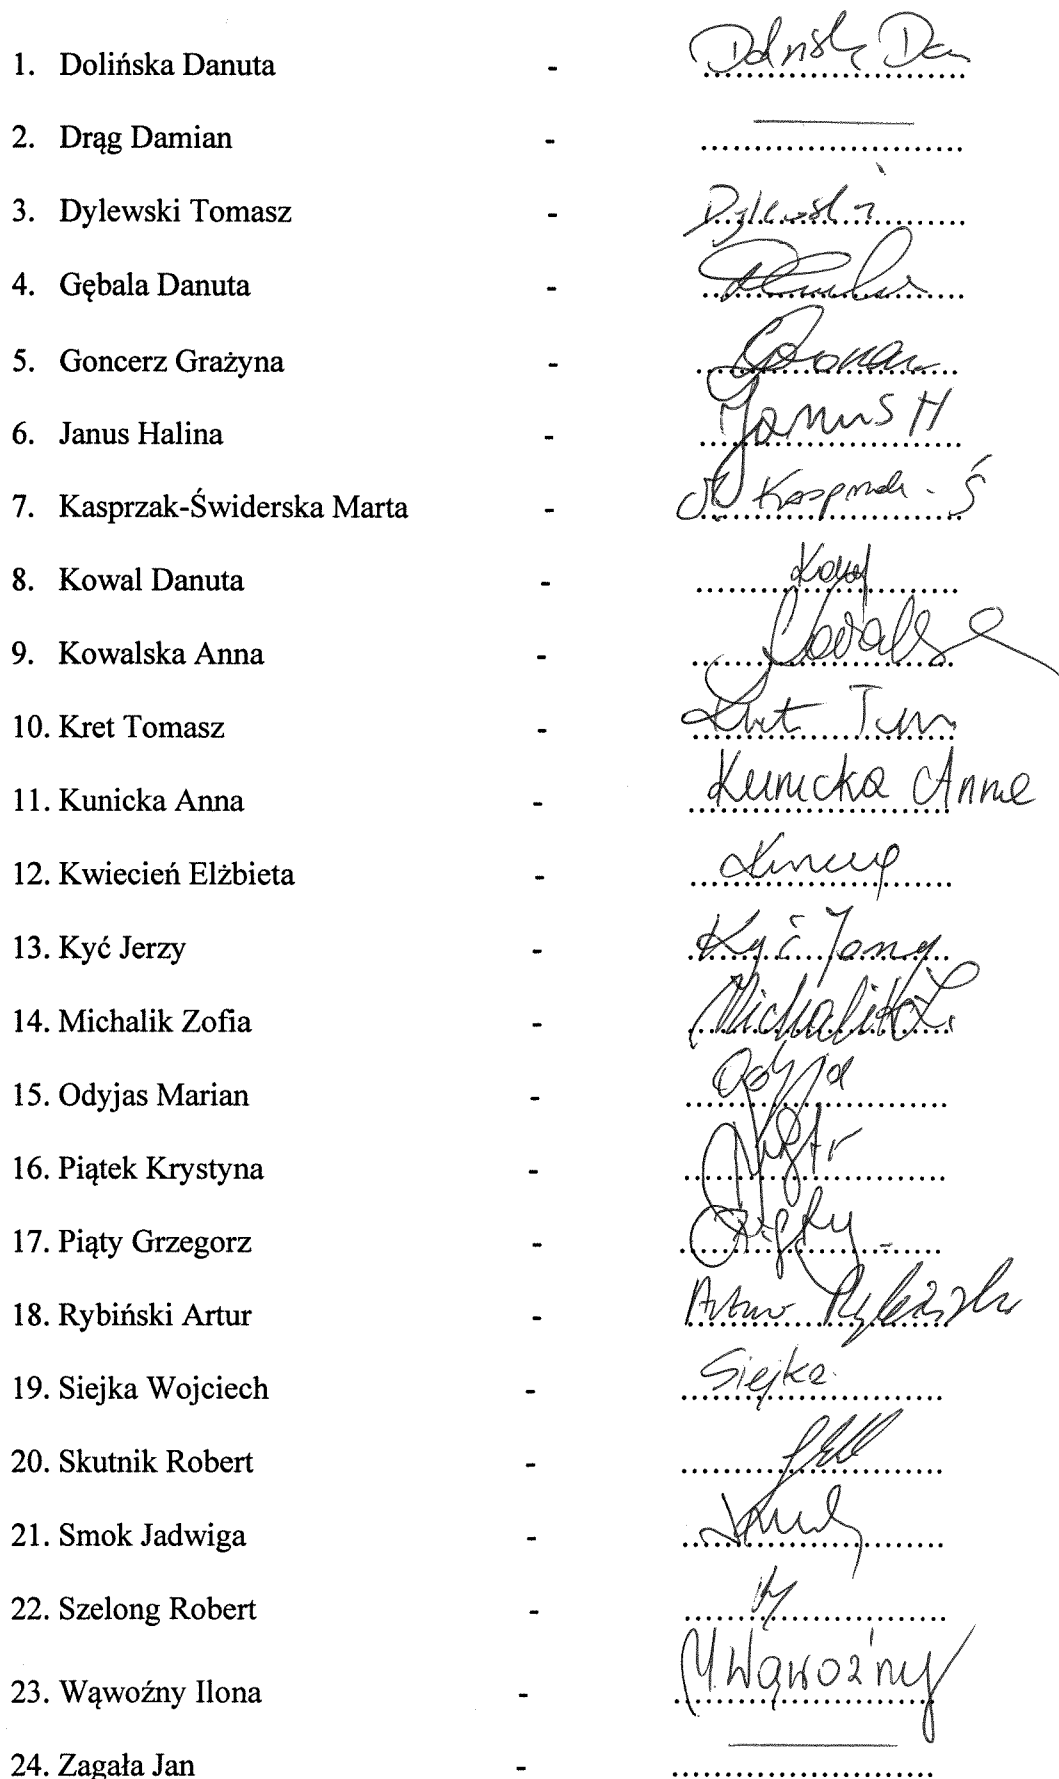 1. Dolińska Danuta - Dolińsk Dan
2. Drąg Damian - ........................
3. Dylewski Tomasz - Dylewski
4. Gębala Danuta -
5. Goncerz Grażyna -
6. Janus Halina - Janus H
7. Kasprzak-Świderska Marta - M Kasprzak - Ś
8. Kowal Danuta - Kowal
9. Kowalska Anna - Kowalska
10. Kret Tomasz - Kret Tom
11. Kunicka Anna - Kunicka Anna
12. Kwiecień Elżbieta -
13. Kyć Jerzy - Kyć Jerzy
14. Michalik Zofia - Michalik Z.
15. Odyjas Marian - Odyja
16. Piątek Krystyna -
17. Piąty Grzegorz - Piąty
18. Rybiński Artur - Artur Rybiński
19. Siejka Wojciech - Siejka
20. Skutnik Robert -
21. Smok Jadwiga -
22. Szelong Robert -
23. Wąwoźny Ilona - Wąwoźny
24. Zagała Jan - ........................